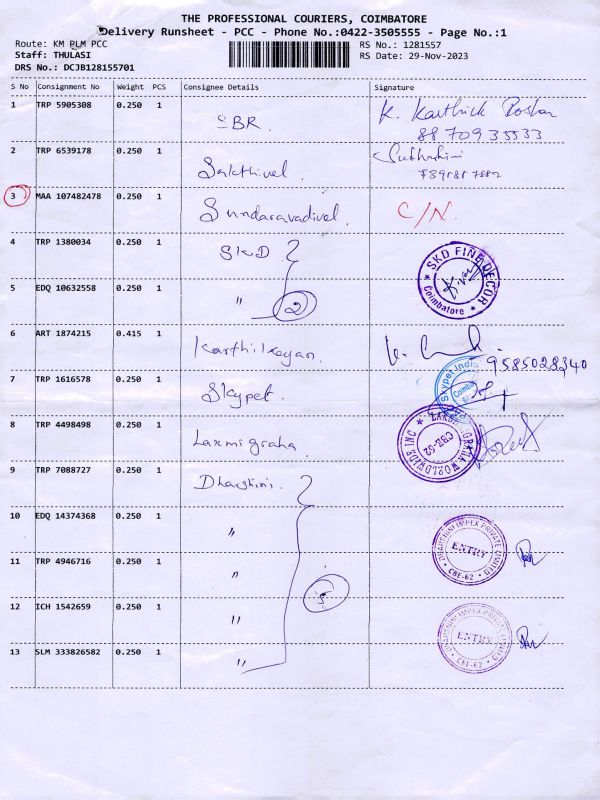 THE PROFESSIONAL COURIERS, COIMBATORE
Delivery Runsheet - PCC - Phone No.:0422-3505555 - Page No.:1
Route: KM PLM PCC
Staff: THULASI
DRS No.: DCJB128155701
RS No.: 1281557
RS Date: 29-Nov-2023
S No Consignment No Weight PCS Consignee Details Signature
1 TRP 5905308 0.250 1 SBR K. Karthick Roshan
8870935533
2 TRP 6539178 0.250 1 Sakthivel Subhashini
3 MAA 107482478 0.250 1 Sundaravadivel C/N.
4 TRP 1380034 0.250 1 SKD SKD FINE DECOR Coimbatore
5 EDQ 10632558 0.250 1 " 2
6 ART 1874215 0.415 1 Karthikeyan
9585028340
7 TRP 1616578 0.250 1 Skypet Skypet India
8 TRP 4498498 0.250 1 Laxmigraha CBE-62
9 TRP 7088727 0.250 1 Dharshini
10 EDQ 14374368 0.250 1 " DHARSHINI IMPEX PRIVATE LIMITED ENTRY CBE-62
11 TRP 4946716 0.250 1 "
5
12 ICH 1542659 0.250 1 " DHARSHINI IMPEX PRIVATE LIMITED ENTRY CBE-62
13 SLM 333826582 0.250 1 "